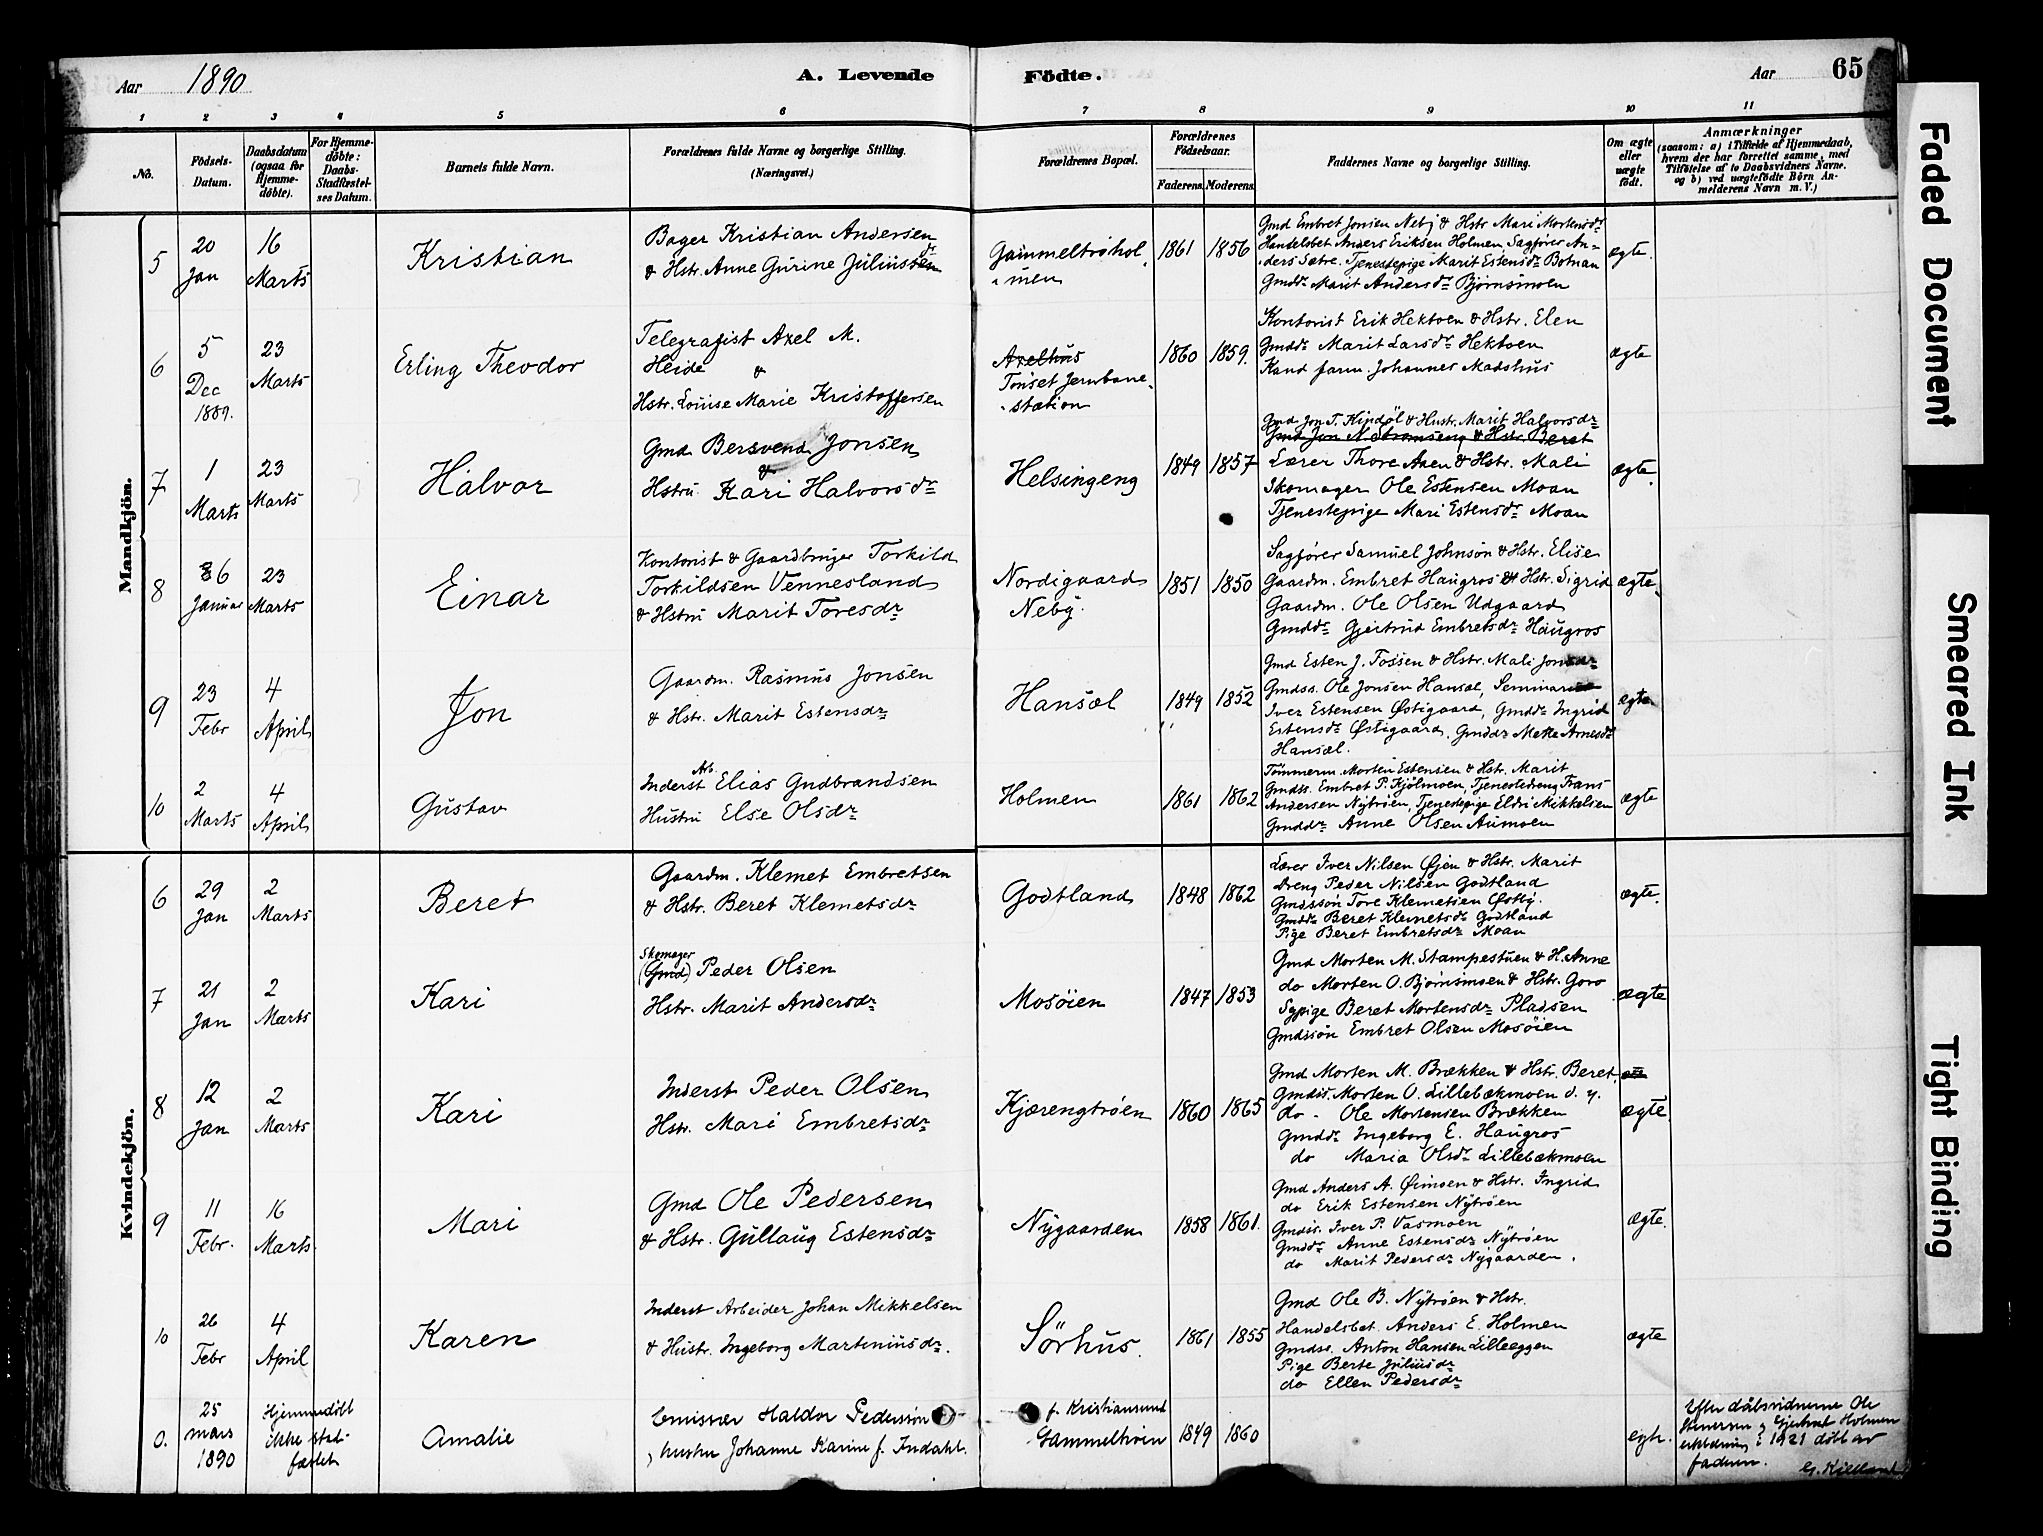 Aar 1890
A. Levende
Födte.
Aar
65
1 2 3 4 5 6 7 8 9 10 11
No.
Födsels-
Datum.
Daabsdatum
(ogsaa for
Hjemme-
döbte).
For Hjemme-
döbte:
Daabs-
Stadfæstel-
ses Datum.
Barnets fulde Navn.
Forældrenes fulde Navne og borgerlige Stilling.
(Næringsvei.)
Forældrenes Bopæl.
Forældrenes
Födselsaar.
Faderens.
Moderens.
Faddernes Navne og borgerlige Stilling.
Om ægte
eller
uægte
födt.
Anmærkninger
(saasom: a) i Tilfælde af Hjemmedaab,
hvem der har forrettet samme, med
Tilföielse af to Daabsvidners Navne.
og b) ved uægtefödte Börn An-
melderens Navn m. V.)
Mandkjön.
5
20
Jan
16
Marts
Kristian
Bager Kristian Andersen
& Hstr. Anne Gurine Juliusdr
Gammeltrøhol-
-men
1861
1856
Gmd Embret Jonsen Neby & Hstr Mari Mortensdr
Handelsbet Anders Eriksen Holmen, Sagfører An-
-ders Sætre. Tjenestepige Marit Estensdr Botnan
Gmddr Marit Andersdr Bjørnsmoen
ægte.
6
5
Dec
1889.
23
Marts
Erling Theodor
Telegrafist Axel M.
Heide &
Hstr. Louise Marie Kristoffersen
Axelhus
Tönset Jernbane-
-station
1860
1859.
Kontorist Erik Hektoen & Hstr. Elen
Gmddr Marit Larsdr Hektoen
Kand farm. Johannes Madshus
ægte
7
1
Marts
23
Marts
Halvor
Gmd Bersvend Jonsen
&
Hstru. Kari Halvorsdr
Helsingeng
1849
1857
Gmd Jon T. Kindöl & Hustr. Marit Halvorsdr
Gmd Jon N Strömseng & Hstr. Beret
Lærer Thore Aaen & Hstr. Mali
Skomager Ole Estensen Moan
Tjenestepige Mari Estensdr Moan
ægte.
8
6
Januar
23
Marts
Einar
Kontorist & Gaardbruger Torkild
Torkildsen Vennesland
& Hstru Marit Toresdr
Nordigaard
Neby.
1851
1850
Sagfører Samuel Johnson & Hstr. Elise
Gaardm. Embret Haugros & Hstr. Sigrid
Gaardm. Ole Olsen Udgaard
Gmddr Gjertrud Embretsdr Haugros
ægte.
9
23
Febr
4
April
Jon
Gaardm. Rasmus Jonsen
& Hstr. Marit Estensdr
Hansæl
1849
1852
Gmd Esten J. Tossen & Hstr. Mali Jonsdr
Gmdss. Ole Jonsen Hansæl, Seminarist
Iver Estensen Østigaard, Gmddr Ingrid
Estensdr Østigaard, Gmddr Mette Arnesdr
Hansæl.
ægte.
10
2
Marts
4
April
Gustav
Inderst Arb. Elias Gudbrandsen
Hustru Else Olsdr
Holmen
1861
1862
Tömmerm. Morten Estensen & Hstr. Marit
Gmdss. Embret P. Kjölmoen, Tjenestedreng Frans
Andersen Nytröen, Tjenestepige Eldri Mikkelsen
Gmddr Anne Olsen Aumoen
ægte
Kvindekjön.
6
29
Jan
2
Marts
Beret
Gaardm. Klemet Embretsen
& Hstr. Beret Klemetsdr
Godtland
1848
1862
Lærer Iver Nilsen Øien & Hstr. Marit
Dreng Peder Nilsen Godtland
Gmdssön Tore Klemetsen Østby.
Gmddr Beret Klemetsdr Godtland
Pige Beret Embretsdr Moan
ægte.
7
21
Jan
2
Marts
Kari
Skomager
(Gmd) Peder Olsen
Hstr. Marit Andersdr
Mosöien
1847
1853
Gmd Morten M. Stampestuen & H. Anne
do Morten O. Bjørnsmoen & Hstr. Goro
Sypige Beret Mortensdr Pladsen
Gmdssön Embret Olsen Mosöien
ægte
8
12
Jan
2
Marts
Kari
Inderst Peder Olsen
Hstr. Mari Embretsdr
Kjærengtröen
1860
1865
Gmd Morten M. Brækken & Hstr. Beret,
Gmdss. Morten O. Lillebækmoen d. y.
do - Ole Mortensen Brækken
Gmddr Ingeborg E. Haugros
do Maria Olsdr Lillebækmoen
ægte.
9
11
Febr.
16
Marts
Mari
Gmd Ole Pedersen
& Hstr. Gullaug Estensdr
Nygaarden
1858
1861.
Gmd Anders A. Øimoen & Hstr. Ingrid
do Erik Estensen Nytröen
Gmdss. Iver P. Vasmoen
Gmddr Anne Estensdr Nytröen
do Marit Pedersdr Nygaarden.
ægte.
10
26
Febr
4
April
Karen
Inderst Arbeider Johan Mikkelsen
& Hustr. Ingeborg Martiniusdr.
Sörhus.
1861
1855
Gmd Ole B. Nytröen & Hstr.
Handelsbet. Anders E. Holmen
Gmdss. Anton Hansen Lilleeggen
Pige Berte Juliusdr
do Ellen Pedersdr
ægte
0.
25
mars
1890
Hjemmedöbt
ikke stad-
fæstet
Amalie
Emissær Haldor Pedersen
, hustru Johanne Karine f. Indahl.
f. Kristiansund
Gammeltröen
1849
1860
egte.
Efter dåbsvidnerne Ole
Stenersen og Gjertrud Holmen
erklæring i 1921 döbt av
faderen.
Faded Document
Smeared Ink
Tight Binding